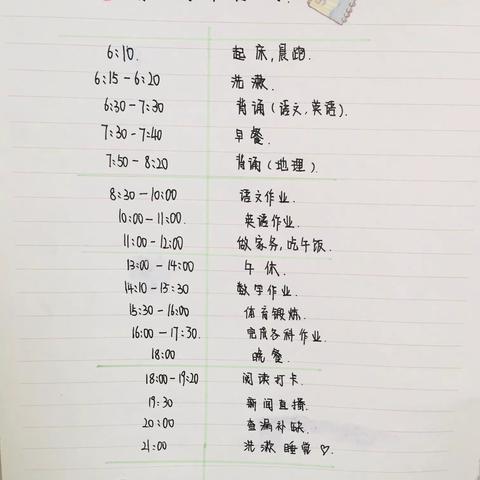 6:10. 起床,晨跑.
6:15-6:20 洗漱.
6:30-7:30 背诵(语文,英语).
7:30-7:40 早餐.
7:50-8:20 背诵(地理).
8:30-10:00 语文作业.
10:00-11:00. 英语作业.
11:00-12:00 做家务,吃午饭.
13:00-14:00 午休.
14:10-15:30 数学作业.
15:30-16:00 体育锻炼.
16:00-17:30. 完成各科作业.
18:00 晚餐.
18:00-19:20 阅读打卡.
19:30 新闻直播.
20:00 查漏补缺.
21:00 洗漱 睡觉♡.